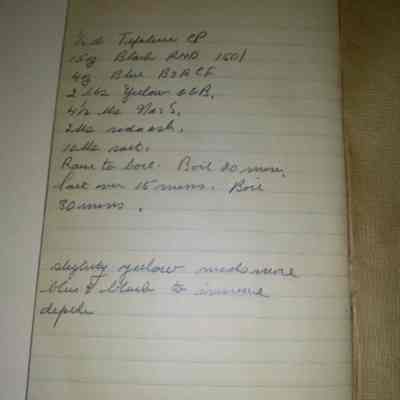 Tepolene CP
15oz Black AND 150/
4oz Blue B2ACF
2 lbs Yellow GGB.
4½ lbs Na2S.
2lbs sodaash.
10lbs salt.
Raise to boil. Boil 20 mins,
Salt over 15 mins. Boil
30 mins.
slightly yellow needs more
blue & black to increase
depth